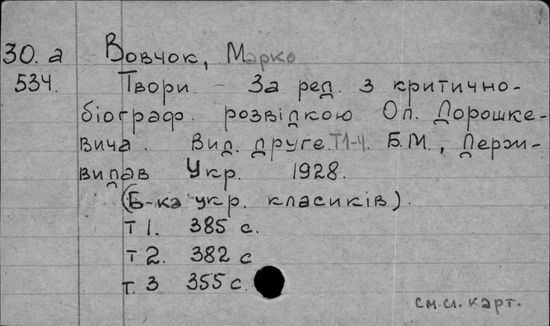 30. а Вовчок, Марко
534. Твори. За ред. з критично-
біограф. розвідкою Ол. Дорошке-
вича. Вид. друге. Т1-4. Б.М., Держ-
видав Укр. 1928.
(Б-ка укр. класиків).
т 1. 385 с.
т 2. 382 с
т. 3 355 с.
см. сл. карт.